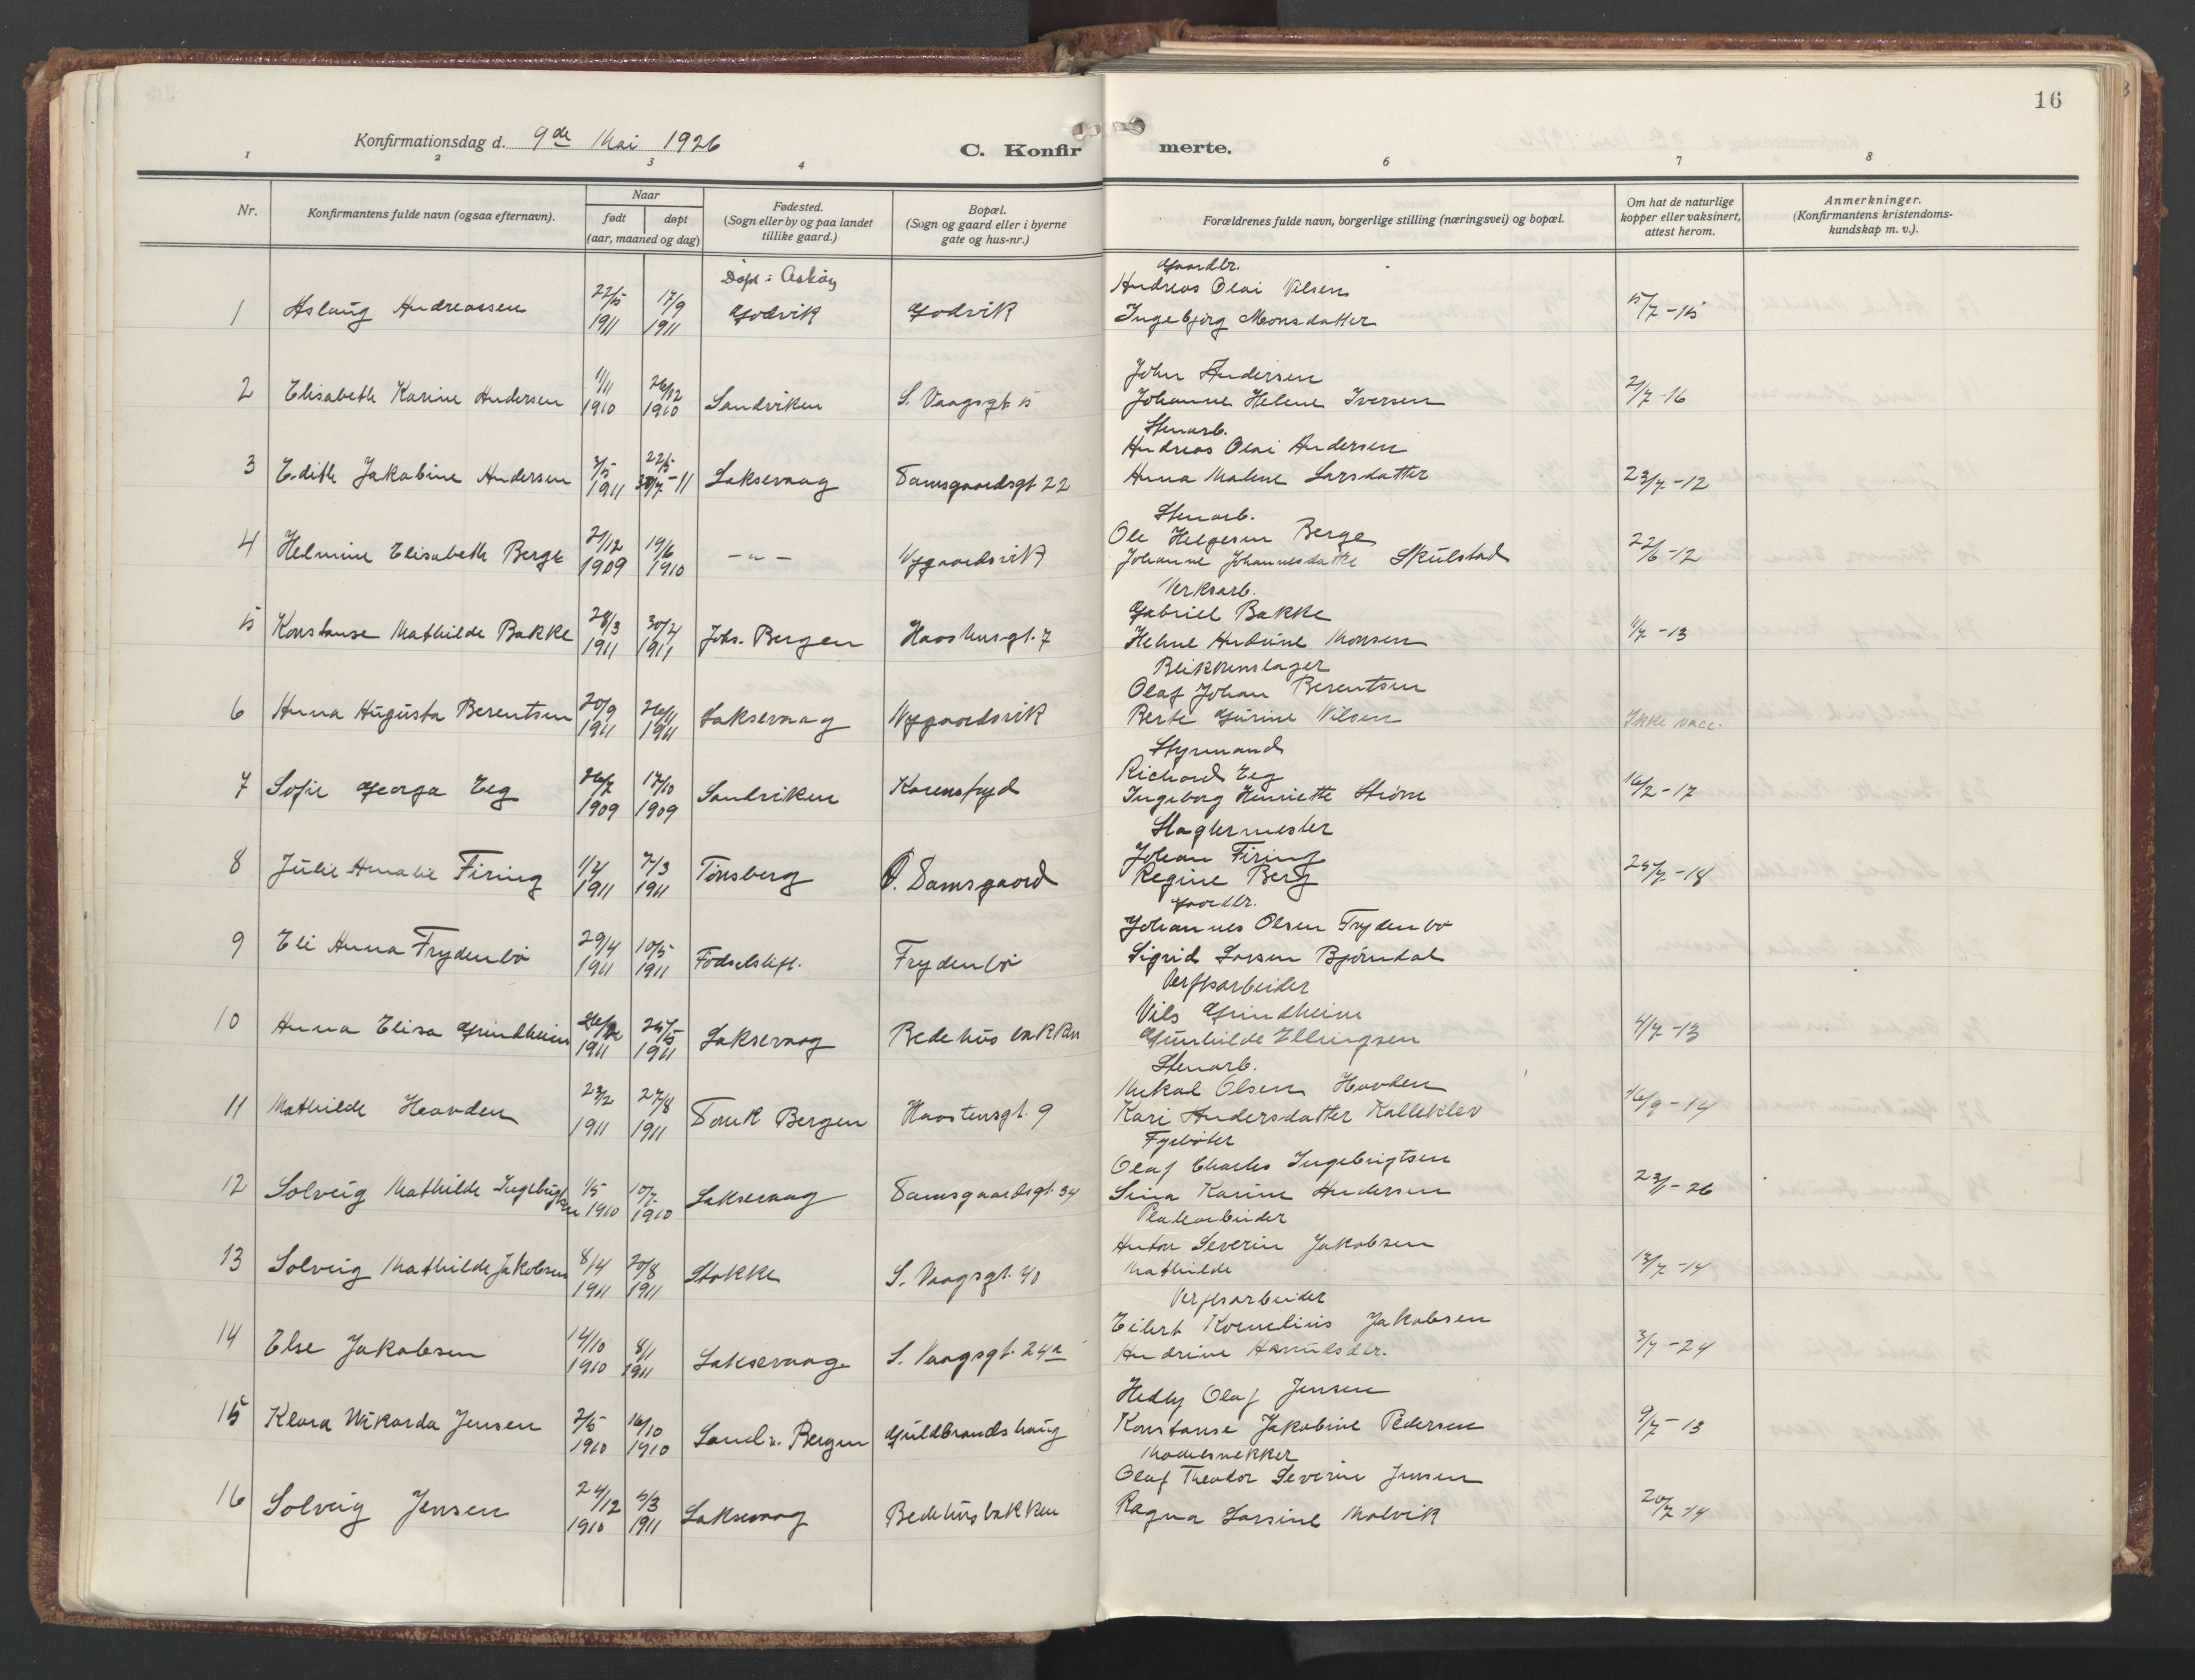 16
Konfirmationsdag d. 9de Mai 1926
C. Konfirmerte.
1 2 3 4 6 7 8
Nr.
Konfirmantens fulde navn (ogsaa efternavn).
Naar
født døpt
(aar, maaned og dag)
Fødested.
(Sogn eller by og paa landet
tillike gaard.)
Bopæl.
(Sogn og gaard eller i byerne
gate og hus-nr.)
Forældrenes fulde navn, borgerlige stilling (næringsvei) og bopæl.
Om hat de naturlige
kopper eller vaksinert,
attest herom.
Anmerkninger.
(Konfirmantens kristendoms-
kundskap m. v.).
Døpt i Askøy
Gaardbr.
Andreas Olai Nilsen
1 Aslaug Andreassen 22/5 1911 17/9 1911 Godvik Godvik
Ingebjørg Monsdatter 15/7-15
John Andersen
2 Elisabeth Karine Andersen 11/11 1910 26/12 1910 Sandviken S. Vaagsgt 15
Johanne Helene Iversen 2/7 16
Stenarb.
Andreas Olai Andersen
3 Edith Jakobine Andersen 3/5 1911 22/5 30/7-11 Laksevaag Damsgaardsgt 22
Anna Malene Larsdatter 23/7-12
Stenarb.
Ole Helgesen Berge
4 Helmine Elisabeth Berge 21/12 1909 19/6 1910 -"- Nygaardsvik
Johanne Johannesdatter Skulstad 22/6-12
Verksarb.
Gabriel Bakke
5 Konstanse Mathilde Bakke 28/3 1911 30/4 1911 Johs. Bergen Haastensgt. 7
Helene Andrine Monsen 11/7-13
Blikkenslager
Olaf Johan Berentsen
6 Anna Augusta Berentsen 20/9 1911 26/11 1911 Laksevaag Nygaardsvik
Berte Gurine Nilsen Ikke vacc.
Styrmand
Richard Eeg
7 Sofie Georga Eeg 26/7 1909 17/10 1909 Sandviken Karensfryd
Ingeborg Henriette Strøm 16/2-17
Slagtermester
Johan Firing
8 Julie Amalie Firing 1/2 1911 7/3 1911 Tønsberg Ø. Damsgaard
Regine Berg 25/7-18
Gaardbr.
Johannes Olsen Frydenbø
9 Eli Anna Frydenbø 29/4 1911 10/5 1911 Fødselstift. Frydenbø
Sigrid Larsen Bjørndal
Verftsarbeider
Nils Grindheim
10 Anna Elisa Grindheim 1911 25/5 1911 Laksevaag Bedehusbakken
Gunhilde Ellingsen 4/7-13
Stenarb.
Mikal Olsen Havden
11 Mathilde Haavden 23/2 1911 27/8 1911 Domk Bergen Haastensgt. 9
Kari Andersdatter Kalleklev 16/9-14
Fyrbøter
Olaf Charles Ingebrigtsen
12 Solveig Mathilde Ingebrigtsen 1/5 1910 10/7 1910 Laksevaag Damsgaardsgt. 34
Sina Karine Andersen 23/1-26
Platearbeider
Anton Severin Jakobsen
13 Solveig Mathilde Jakobsen 8/4 1911 20/8 1911 Stokke S. Vaagsgt. 40
Mathilde 13/7-14
Verftsarbeider
Eilert Kornelius Jakobsen
14 Else Jakobsen 14/10 1910 8/1 1911 Laksevaag S. Vaagsgt. 24a
Andrine 3/7-24
Hedly Olaf Jensen
15 Klara Wikarda Jensen 7/5 1910 16/10 1910 Sandv. Bergen Guldbrandshaug
Konstanse Jakobine Pedersen 9/7-13
Modelsnekker
Olaf Theodor Severin Jensen
16 Solveig Jensen 24/12 1910 5/3 1911 Laksevaag Bedehusbakken
Ragna Larsine Molvik 20/7-14